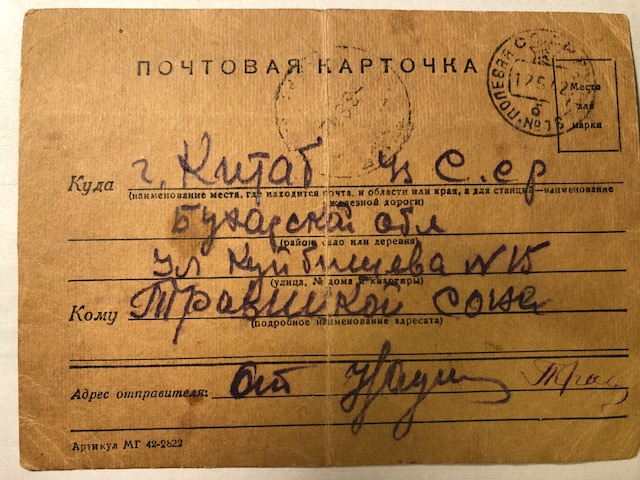 ПОЧТОВАЯ КАРТОЧКА
ПОЛЕВАЯ
Место
для
марки
Куда г. Китаб Уз С.ср
(наименование места, где находится почта, и области или края, а для станций—наименование
железной дороги)
Бухарской обл
(район, село или деревня)
ул Куйбишева N 15
(улица, № дома и квартиры)
Кому
(подробное наименование адресата)
Адрес отправителя: от
Артикул МГ 42-2822